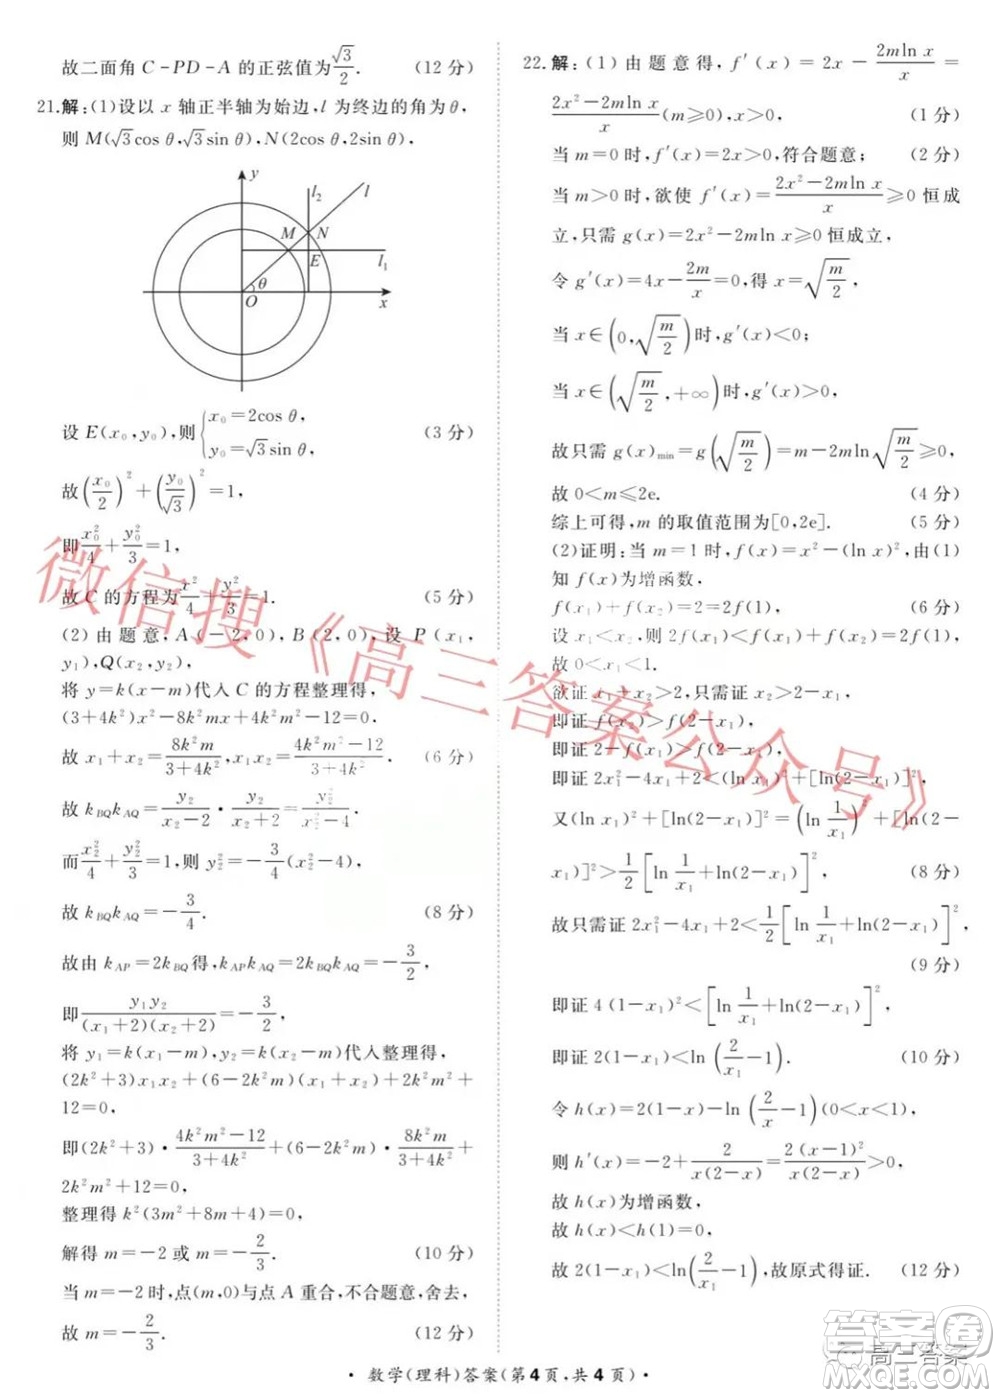 故二面角 C-PD-A 的正弦值为√3/2. (12 分)
21.解:(1)设以 x 轴正半轴为始边,l 为终边的角为 θ,
则 M(√3cos θ,√3sin θ),N(2cos θ,2sin θ),
y
l₂
l
M
N
E
l₁
θ
O
x
设 E(x₀,y₀),则{x₀=2cos θ, y₀=√3sin θ, (3 分)
故(x₀/2)²+(y₀/√3)²=1,
即x₀²/4+y₀²/3=1,
故 C 的方程为x²/4+y²/3=1. (5 分)
(2) 由 题 意, A (-2,0), B (2,0), 设 P (x₁,
y₁),Q(x₂,y₂),
将 y=k(x-m)代入 C 的方程整理得,
(3+4k²)x²-8k²mx+4k²m²-12=0,
故 x₁+x₂=8k²m/(3+4k²),x₁x₂=(4k²m²-12)/(3+4k²), (6 分)
故 k_BQ k_AQ=y₂/(x₂-2)·y₂/(x₂+2)=y₂²/(x₂²-4),
而x₂²/4+y₂²/3=1,则 y₂²=-3/4(x₂²-4),
故 k_BQ k_AQ=-3/4. (8 分)
故由 k_AP=2k_BQ得,k_AP k_AQ=-3/2,
即y₁y₂/((x₁+2)(x₂+2))=-3/2,
将 y₁=k(x₁-m),y₂=k(x₂-m)代入整理得,
(2k²+3)x₁x₂+(6-2k²m)(x₁+x₂)+2k²m²+
12=0,
即(2k²+3)·(4k²m²-12)/(3+4k²)+(6-2k²m)·8k²m/(3+4k²)+
2k²m²+12=0,
整理得 k²(3m²+8m+4)=0,
解得 m=-2 或 m=-2/3. (10 分)
当 m=-2 时,点(m,0)与点 A 重合,不合题意,舍去,
故 m=-2/3. (12 分)
22.解:(1) 由 题 意 得, f′(x)=2x-2mln x/x=
(2x²-2mln x)/x(m≥0),x>0, (1 分)
当 m=0 时,f′(x)=2x>0,符合题意; (2 分)
当 m>0 时,欲使 f′(x)=(2x²-2mln x)/x≥0 恒成
立,只需 g(x)=2x²-2mln x≥0 恒成立,
令 g′(x)=4x-2m/x=0,得 x=√(m/2),
当 x∈(0,√(m/2))时,g′(x)<0;
当 x∈(√(m/2),+∞)时,g′(x)>0,
故只需 g(x)min=g(√(m/2))=m-2mln√(m/2)≥0,
故 0<m≤2e. (4 分)
综上可得,m 的取值范围为[0,2e]. (5 分)
(2)证明:当 m=1 时,f(x)=x²-(ln x)²,由(1)
知 f(x)为增函数,
f(x₁)+f(x₂)=2=2f(1), (6 分)
设 x₁<x₂,则 2f(x₁)<f(x₁)+f(x₂)=2f(1),
故 0<x₁<1.
欲证 x₁+x₂>2,只需证 x₂>2-x₁,
即证 f(x₂)>f(2-x₁),
即证 2-f(x₁)>f(2-x₁),
即证 2x₁²-4x₁+2<(ln x₁)²+[ln(2-x₁)]²,
又(ln x₁)²+[ln(2-x₁)]²=(ln 1/x₁)²+[ln(2-
x₁)]²>1/2[ln 1/x₁+ln(2-x₁)]², (8 分)
故只需证 2x₁²-4x₁+2<1/2[ln 1/x₁+ln(2-x₁)]²,
(9 分)
即证 4(1-x₁)²<[ln 1/x₁+ln(2-x₁)]²,
即证 2(1-x₁)<ln(2/x₁-1). (10 分)
令 h(x)=2(1-x)-ln(2/x-1)(0<x<1),
则 h′(x)=-2+2/(x(2-x))=2(x-1)²/(x(2-x))>0,
故 h(x)为增函数,
故 h(x)<h(1)=0,
故 2(1-x₁)<ln(2/x₁-1),故原式得证. (12 分)
微信搜《高三答案公众号》
答案圈
高三答案
MXQE.COM
·数学(理科)答案(第4页,共4页)·